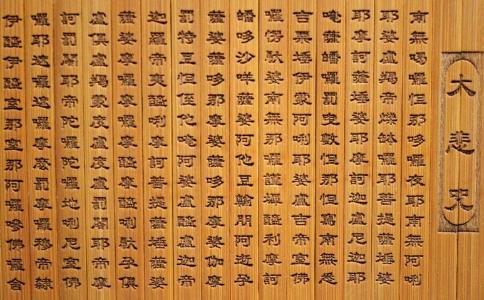 大悲咒
南無喝囉怛那哆囉夜耶南無阿唎
耶婆盧羯帝爍缽囉耶菩提薩埵婆
耶摩訶薩埵婆耶摩訶迦盧尼迦耶
唵薩皤囉罰曳數怛那怛寫南無悉
吉栗埵伊蒙阿唎耶婆盧吉帝室佛
囉楞馱婆南無那囉謹墀醯利摩訶
皤哆沙咩薩婆阿他豆輸朋阿逝孕
薩婆薩哆那摩婆薩哆那摩婆伽摩
罰特豆怛侄他唵阿婆盧醯盧迦帝
迦羅帝夷醯唎摩訶菩提薩埵薩婆
薩婆摩囉摩囉摩醯摩醯唎馱孕俱
盧俱盧羯蒙度盧度盧罰闍耶帝摩
訶罰闍耶帝陀囉陀囉地唎尼室佛
囉耶遮囉遮囉摩麼罰摩囉穆帝隸
伊醯伊醯室那室那阿囉參佛囉舍